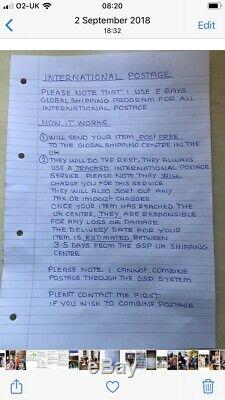 O2-UK
08:20
2 September 2018
18:32
Edit
INTERNATIONAL POSTAGE
PLEASE NOTE THAT I USE E BAYS
GLOBAL SHIPPING PROGRAM FOR ALL
INTERNATIONAL POSTAGE
HOW IT WORKS
① I WILL SEND YOUR ITEM POST FREE
TO THE GLOBAL SHIPPING CENTRE IN THE
UK
② THEY WILL DO THE REST. THEY ALWAYS
USE A TRACKED INTERNATIONAL POSTAGE
SERVICE. PLEASE NOTE THEY WILL
CHARGE YOU FOR THIS SERVICE
THEY WILL ALSO SORT OUT ANY
TAX OR IMPORT CHARGES
ONCE YOUR ITEM HAS REACHED THE
UK CENTRE, THEY ARE RESPONSIBLE
FOR ANY LOSS OR DAMAGE.
THE DELIVERY DATE FOR YOUR
ITEM IS ESTIMATED BETWEEN
3-5 DAYS FROM THE GSP UK SHIPPING
CENTRE.
PLEASE NOTE I CANNOT COMBINE
POSTAGE THROUGH THE GSP SYSTEM
PLEASE CONTACT ME FIRST
IF YOU WISH TO COMBINE POSTAGE